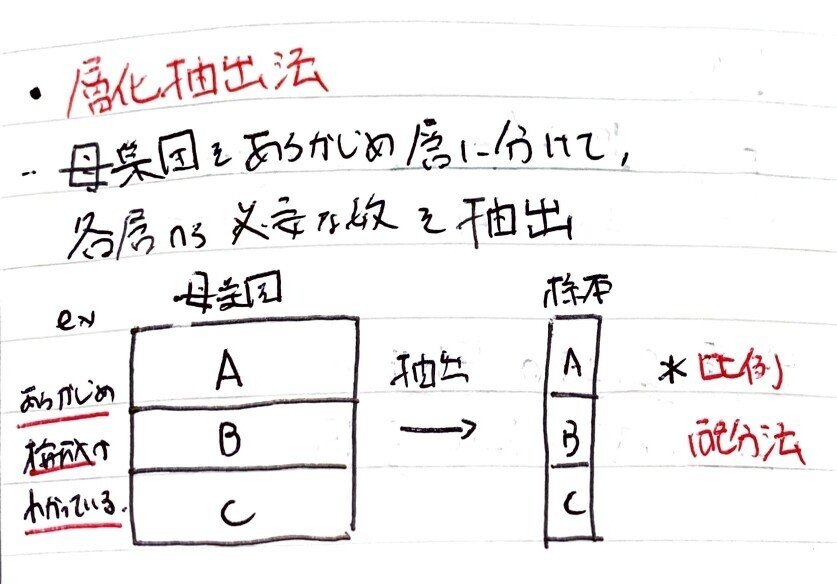 ・層化抽出法
‥母集団をあらかじめ層に分けて,
各層から必要な数を抽出
ex
母集団
標本
あらかじめ
構成は
わかっている.
A
B
C
抽出
→
A
B
C
*比例
配分法